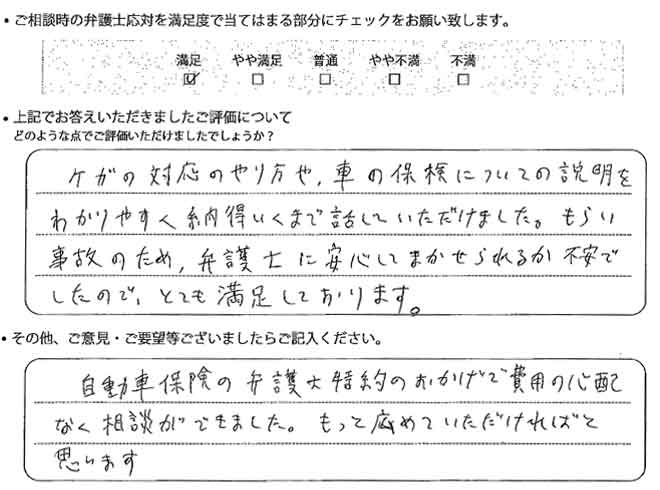 ・ご相談時の弁護士応対を満足度で当てはまる部分にチェックをお願い致します。
満足 やや満足 普通 やや不満 不満
☑ □ □ □ □
・上記でお答えいただきましたご評価について
どのような点でご評価いただけましたでしょうか？
ケガの対応のやり方や、車の保検についての説明を
わかりやすく納得いくまで話していただけました。もらい
事故のため、弁護士に安心してまかせられるか不安で
したので、とても満足しております。
・その他、ご意見・ご要望等ございましたらご記入ください。
自動車保険の弁護士特約のおかげで費用の心配
なく相談ができました。もって広めていただければと
思います